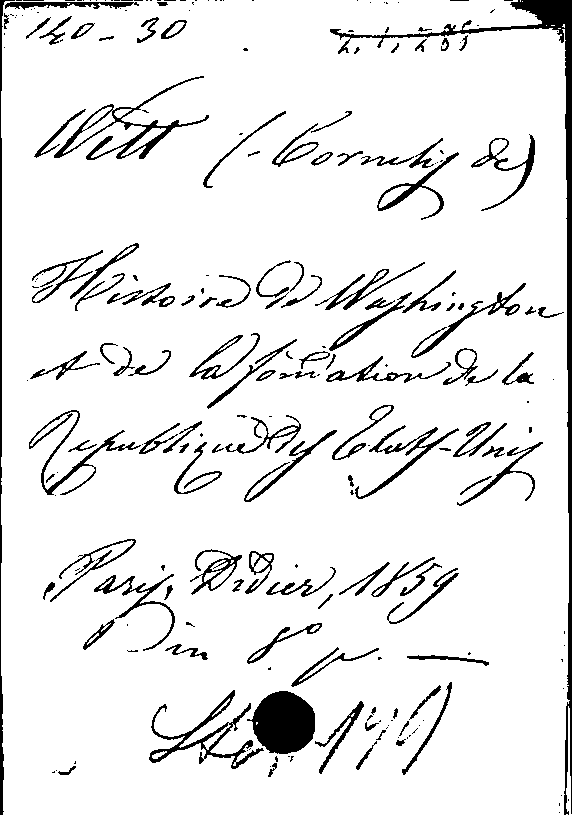 140 - 30
Witt (- Cornelis de)
Histoire de Washington
et de la formation de la
Republique des Etats-Unis
Paris, Didier, 1859
in 8° p. —